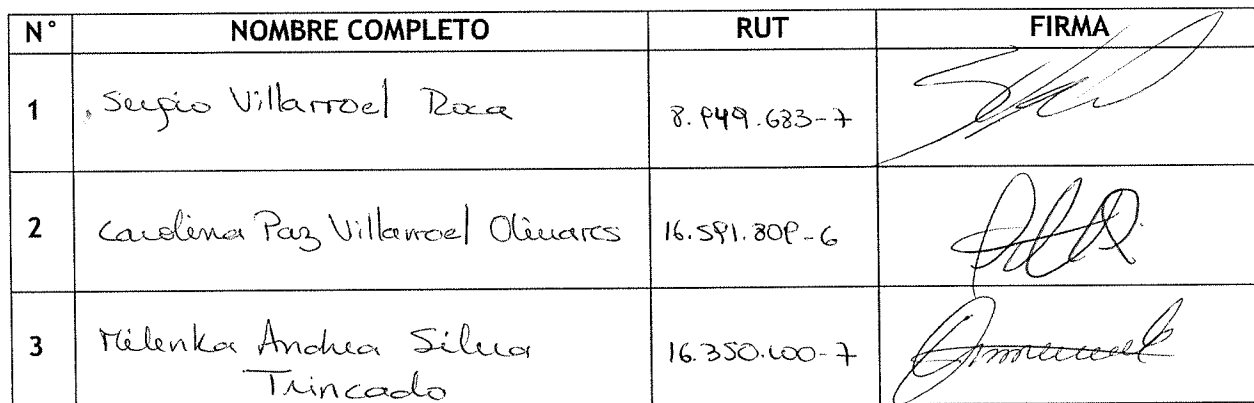 N° NOMBRE COMPLETO RUT FIRMA
1 Sergio Villarroel Roca 8.949.683-7
2 Carolina Paz Villarroel Olivares 16.591.809-6
3 Milenka Andrea Silva
Trincado 16.350.600-7